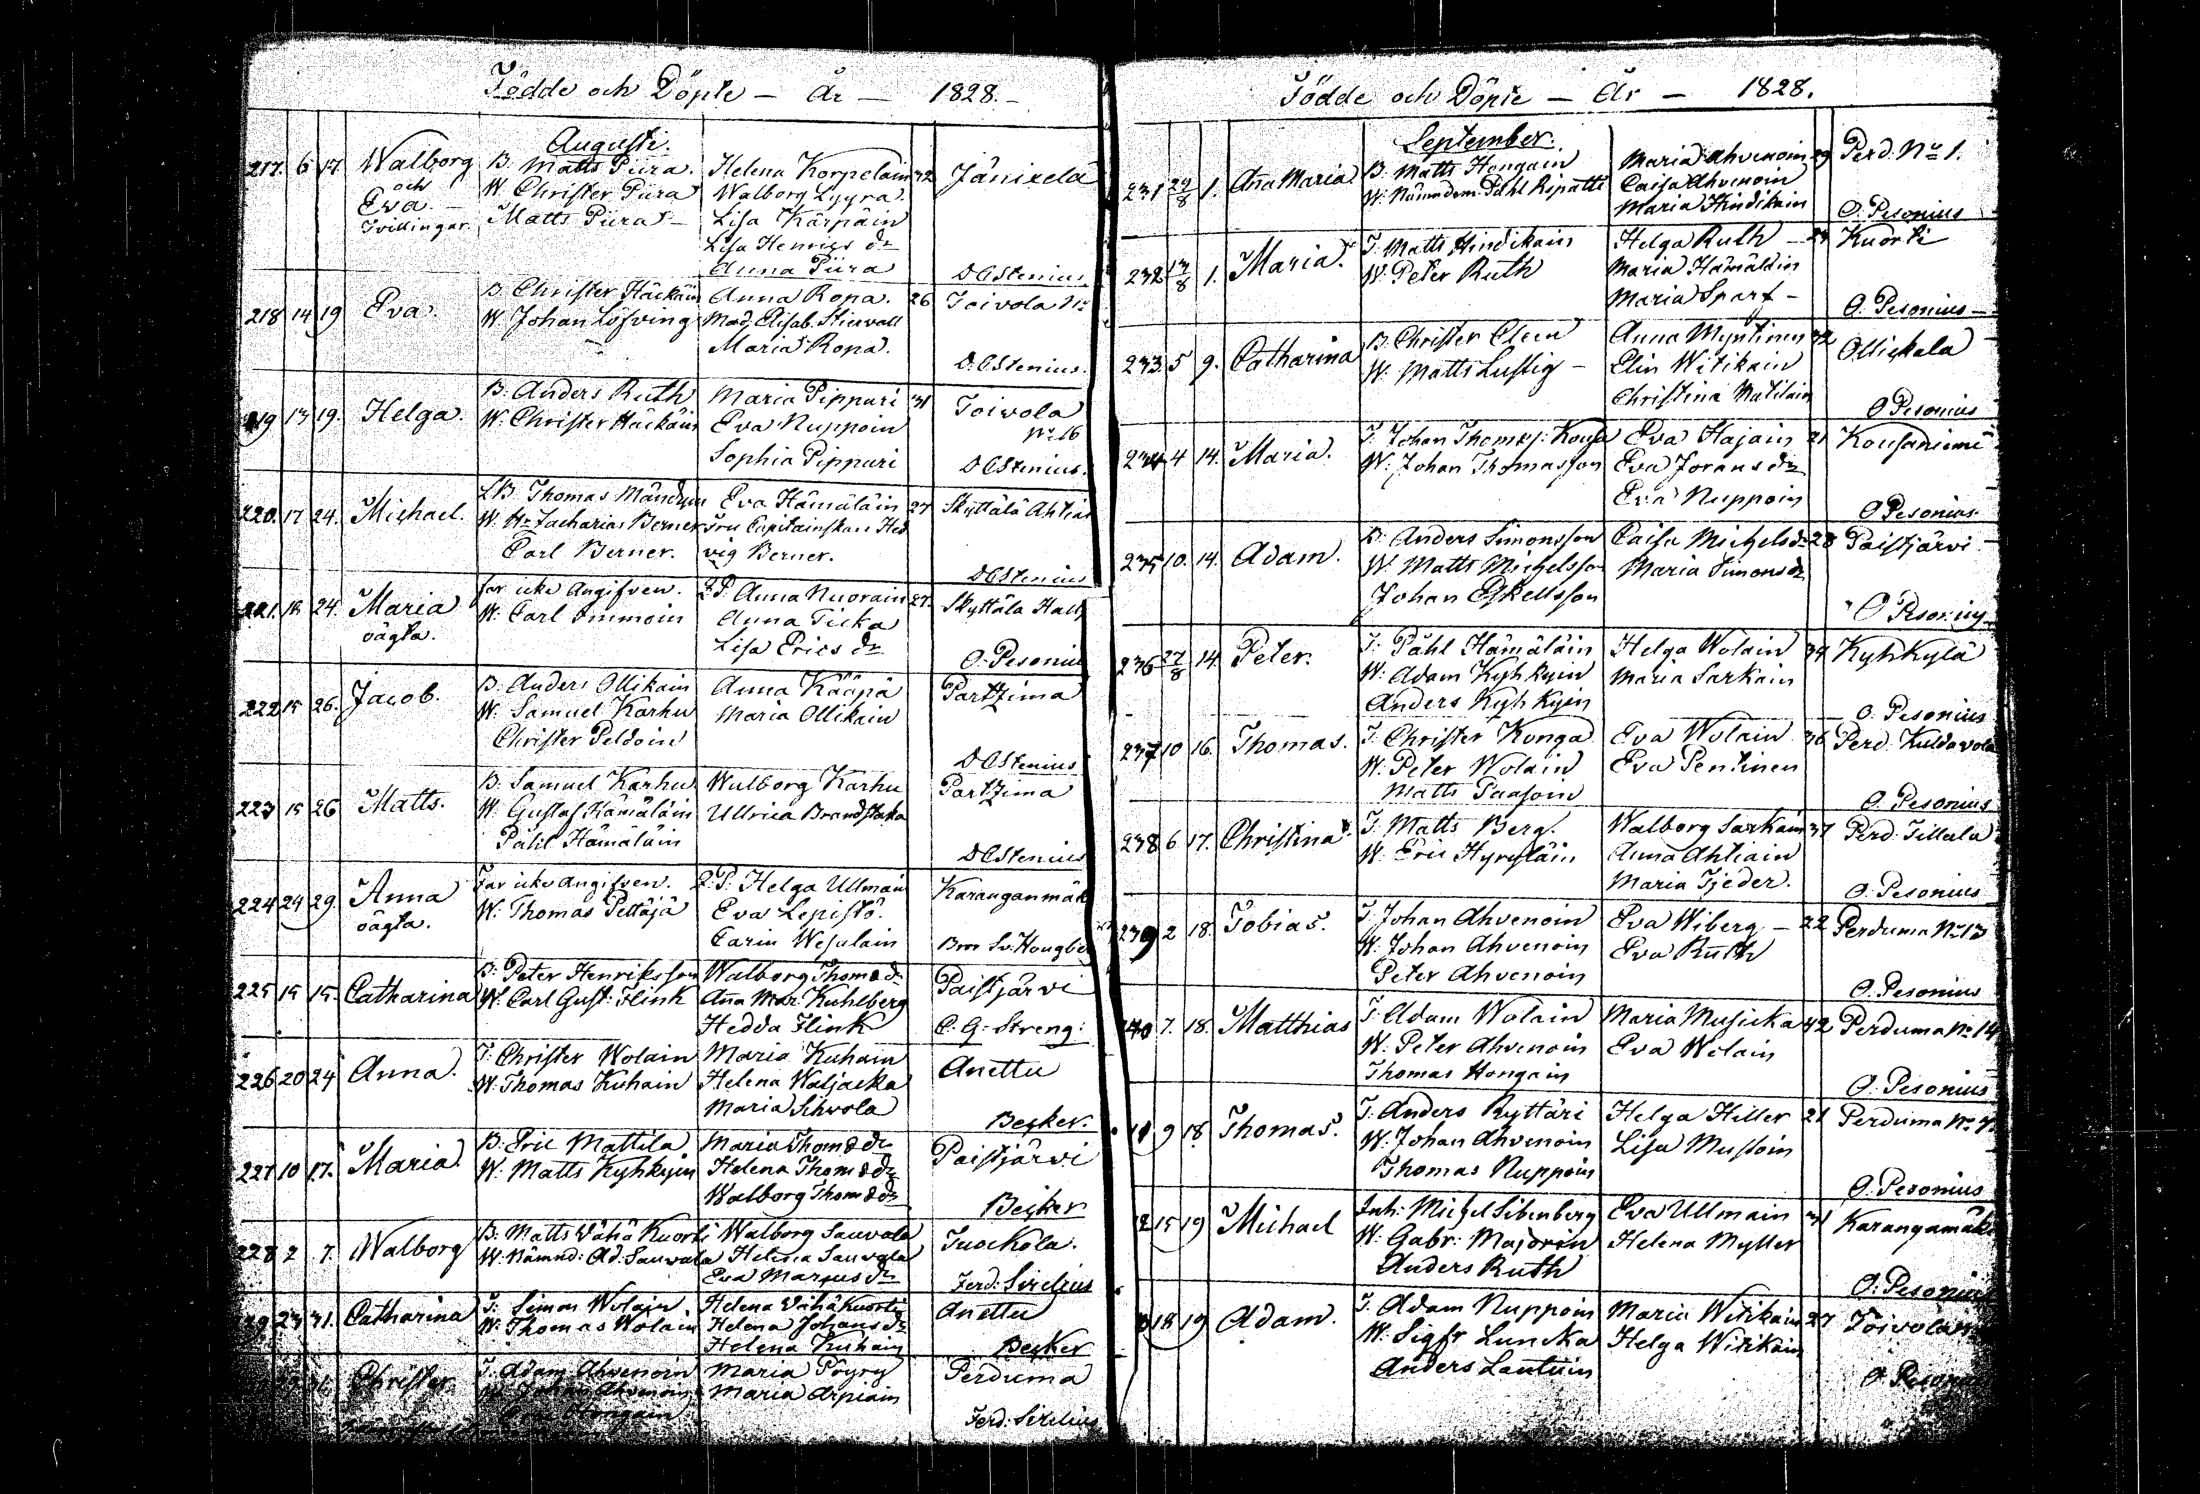 Födde och Döpte — År — 1828. —
Augusti.
217. 6 17 Walborg B. Matts Piira. Helena Korpelain 32 Jänixelä
och W. Christer Piira Walborg Lyyra.
Eva — Matts Piira — Lisa Kärpäin
Tvillingar. Lisa Henrics dr
Anna Piira D. Ostenius.
218 14 19 Eva. B. Christer Häckäin Anna Ropa. 26 Toivola No
W. Johan Löfving Mad. Elisab. Stiervall
Maria Ropa. D. Ostenius.
219 13 19. Helga. B. Anders Ruth Maria Pippuri 31 Toivola
W. Christer Häckäin Eva Nuppoin No 16
Sophia Pippuri D. Ostenius.
220. 17 24. Michael. LB. Thomas Eva Hämäläin 27 Skyttälä
W. Hr Zacharias Berner Fru Capitainskan Hed
Carl Berner. vig Berner.
D. Ostenius
221. 18 24. Maria far icke Angifven. Q.P. Anna Nuorain 27. Skyttälä
oägta. W. Carl Immoin Anna Ticka
Lisa Erics dr O. Pesonius
222 15 26. Jacob. B. Anders Ollikain Anna Kääpä Partzima
W. Samuel Karhu Maria Ollikain
Christer Peldoin D. Ostenius
223 15 26 Matts. B. Samuel Karhu Walborg Karhu Partzima
W. Gustaf Hämäläin Ullrica Brandstaka
Påhl Hämäläin D. Ostenius
224 24 29. Anna Far icke angifven. Q.P. Helga Ullmain Karanganmäk
oägta. W. Thomas Pettäjä Eva Lepistö.
Carin Wesalain
225 15 15 Catharina B. Peter Henriksson Walborg Thomæ dr Paistjärvi
W. Carl Gust: Flink Aña Mar: Kuhlberg
Hedda Flink C. G. Streng.
226 20 24 Anna. T. Christer Wolain Maria Kuhain Anettu
W. Thomas Kuhain Helena Waljacka
Maria Sihvola Becker.
227 10 17. Maria. B. Eric Mattila Maria Thomæ dr Paistjärvi
W. Matts Kyhkyin Helena Thomæ dr
Walborg Thomæ dr Becker
228 2 7. Walborg B. Matts Vähä Kuorti Walborg Sauvala Tuockola.
W. Nämnd: Ad. Sauvala Helena Sauvala
Eva Marcus dr Ferd: Sirelius
29 23 31. Catharina T. Simon Wolain Helena Vähäkuortti Anettu
W. Thomas Wolain Helena Johans dr
Helena Kuhain Becker
Christer T. Adam Ahvenoin Maria Pöyry Perduma
W. Johan Ahvenoin Maria Arpiain
Hongain Ferd: Sirelius
Födde och Döpte — År — 1828.
September.
231 29/8 1. Aña Maria. B. Matts Hongain Maria Ahvenoin 29 Perd. No 1.
W. Nämndem. Påhl Ripatti Caisa Ahvenoin
Maria Hindikain O. Pesonius
232 17/8 1. Maria. T. Matts Hindikain Helga Ruth — Kuorti
W. Peter Ruth Maria Hämäläin
Maria Sparf — O. Pesonius —
233. 5 9. Catharina B. Christer Cleen Anna Myntinen 32 Ollickala
W. Matts Lustig — Elin Witikain
Christina Matilain O. Pesonius
234 4 14. Maria. T. Johan Thomæs: Kousa Eva Hajain 21 Kousaniemi
W. Johan Thomasson Eva Jorans dr
Eva Nuppoin O. Pesonius.
235 10. 14. Adam. B. Anders Simonsson Caisa Michels dr 28 Paistjärvi
W. Matts Michelsson Maria Simons dr
Johan Eskellsson O. Pesonius
236 27/8 14. Peter. T. Påhl Hämäläin Helga Wolain 34 Kyhkylä
W. Adam Kyhkyin Maria Sarkain
Anders Kyhkyin O. Pesonius
237 10 16. Thomas. T. Christer Konga Eva Wolain 36 Perd.
W. Peter Wolain Eva Pentinen
Matts Paasoin O. Pesonius
238 6 17. Christina T. Matts Berg. Walborg Sarkain 37 Perd. Tillula
W. Eric Hyrylläin Anna Ahtiain
Maria Tjeder. O. Pesonius
239 2 18. Tobias. T. Johan Ahvenoin Eva Wiberg — 22 Perduma No 13
W. Johan Ahvenoin Eva Ruth
Peter Ahvenoin O. Pesonius
240 7. 18. Matthias T. Adam Wolain Maria Musicka 42 Perduma No 14
W. Peter Ahvenoin Eva Wolain
Thomas Hongain O. Pesonius
41 9 18. Thomas. T. Anders Ryttäri Helga Hiller 21 Perduma No
W. Johan Ahvenoin Lisa Mustoin
Thomas Nuppoin O. Pesonius
42 15 19 Michael Inh: Michel Sibenberg Eva Ullmain 31 Karangamäki
W. Gabr: Majorin Helena Myller
Anders Ruth O. Pesonius
3 18 19 Adam. T. Adam Nuppoin Maria Witikain 27 Toivola
W. Sigfr Luncka Helga Witikain
Anders Lantuin O. Pesonius